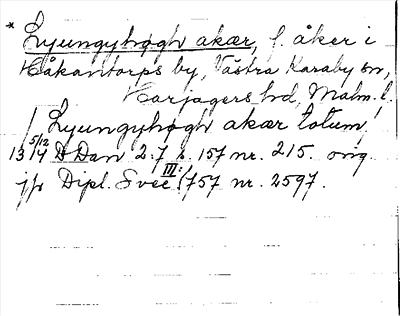 * Lyungyhøgh akær, f. åker i
Håkantorps by, Västra Karaby sn,
Harjagers hd, Malm. l.
Lyungyhøgh akær totum,
13 5/12 14 D Dan 2:7 s. 157 nr. 215. orig.
jfr Dipl. Svec III: 757 nr. 2597.